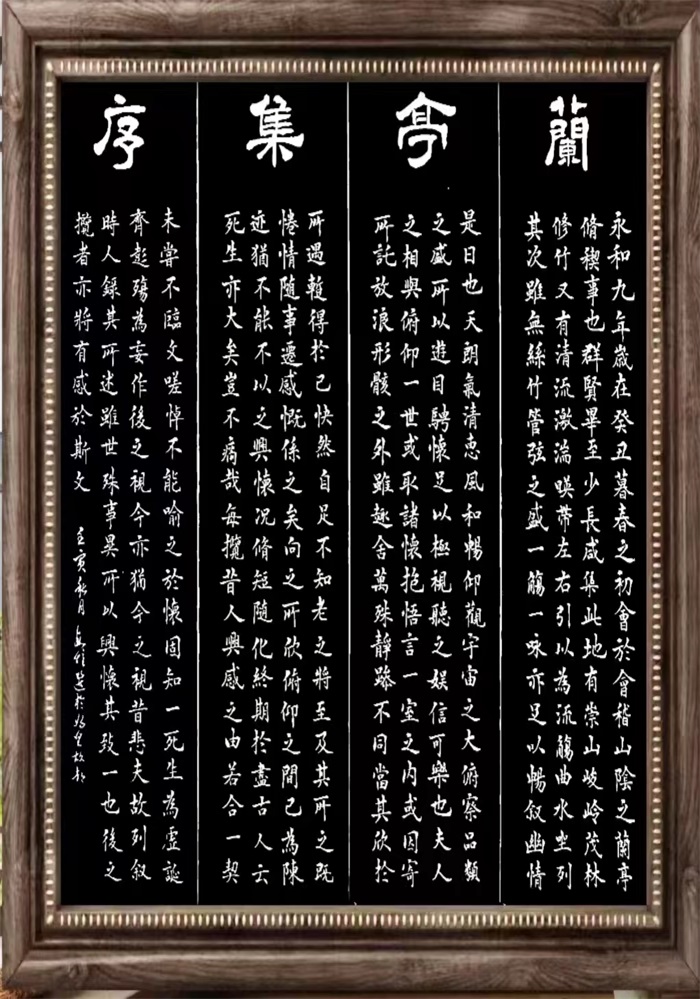 蘭亭集序
永和九年歲在癸丑暮春之初會於會稽山陰之蘭亭
脩稧事也群賢畢至少長咸集此地有崇山歧岭茂林
修竹又有清流激湍暎帶左右引以為流觴曲水坐列
其次雖無絲竹管弦之盛一觴一咏亦足以暢叙幽情
是日也天朗氣清惠風和暢仰觀宇宙之大俯察品類
之盛所以遊目騁懷足以極視聽之娱信可樂也夫人
之相與俯仰一世或取諸懷抱悟言一室之内或因寄
所託放浪形骸之外雖趣舍萬殊静躁不同當其欣於
所遇暫得於己快然自足不知老之將至及其所之既
惓情随事遷感慨係之矣向之所欣俯仰之間已為陳
迹猶不能不以之興懷况脩短随化終期於盡古人云
死生亦大矣豈不痛哉每攬昔人興感之由若合一契
未嘗不臨文嗟悼不能喻之於懷固知一死生為虛誕
齊彭殤為妄作後之視今亦猶今之視昔悲夫故列叙
時人錄其所述雖世殊事異所以興懷其致一也後之
攬者亦將有感於斯文 壬寅秋月